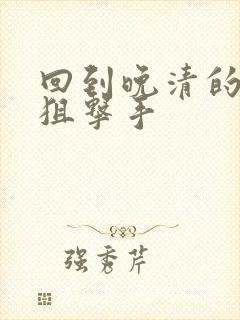 回到晚清的
狙撃手
强秀芹